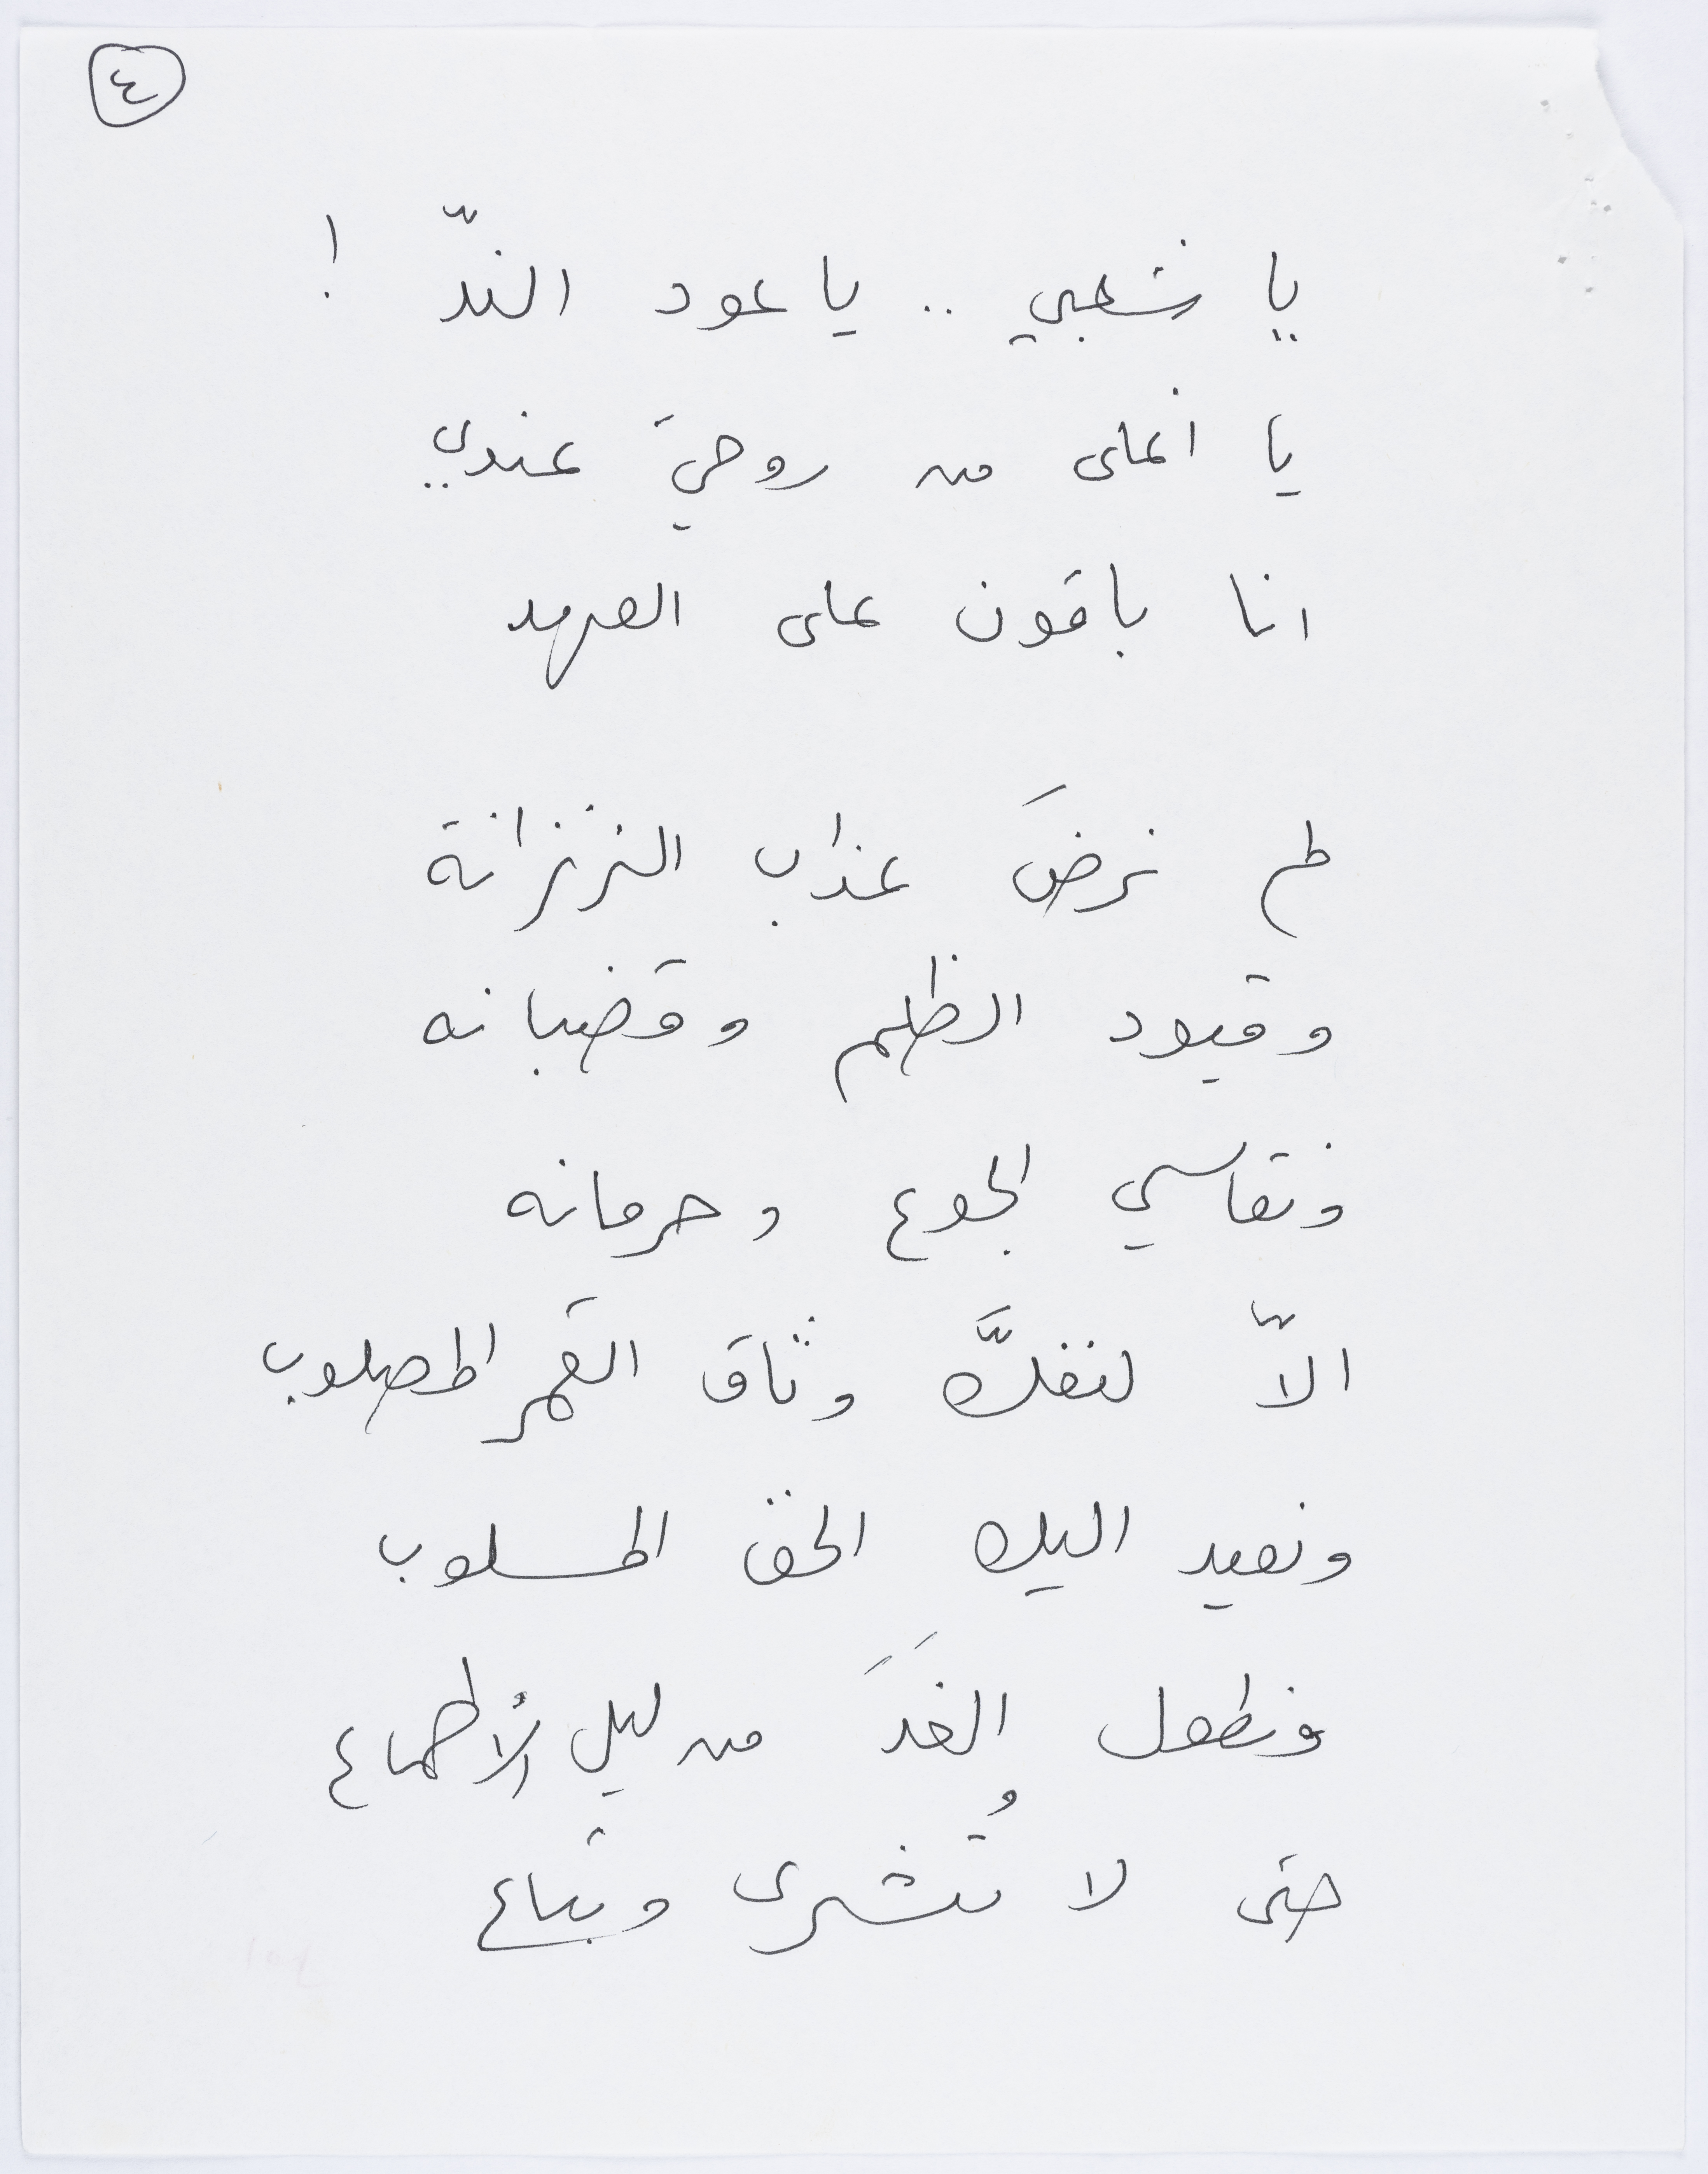 ٤
يا شعبي .. يا عود الندّ !
يا اغلى من روحيَ عندي
انا باقون على العهد
لم نرضَ عذاب الزنزانة
وقيود الظلم وقضبانه
ونقاسي الجوع وحرمانه
الاّ لنفكَّ وثاق القمر المصلوب
ونعيد اليك الحق المسلوب
ونطول الغَدَ من ليل الأطماع
حتى لا تُشرى وتباع